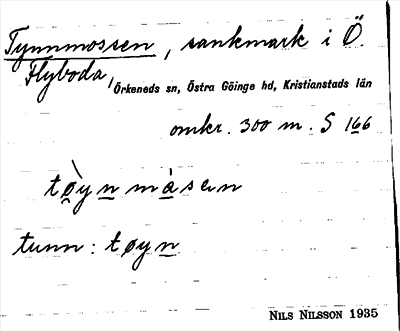 Tynnmossen, sankmark i Ö.
Flyboda, Örkeneds sn, Östra Göinge hd, Kristianstads län
omkr. 300 m. S 166
tø̀yn måsen
tunn: tøyn
NILS NILSSON 1935